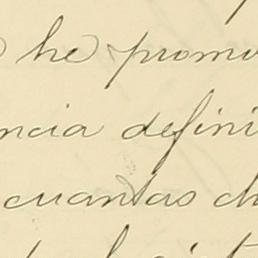 he promo
ncia defini
cuantas ch